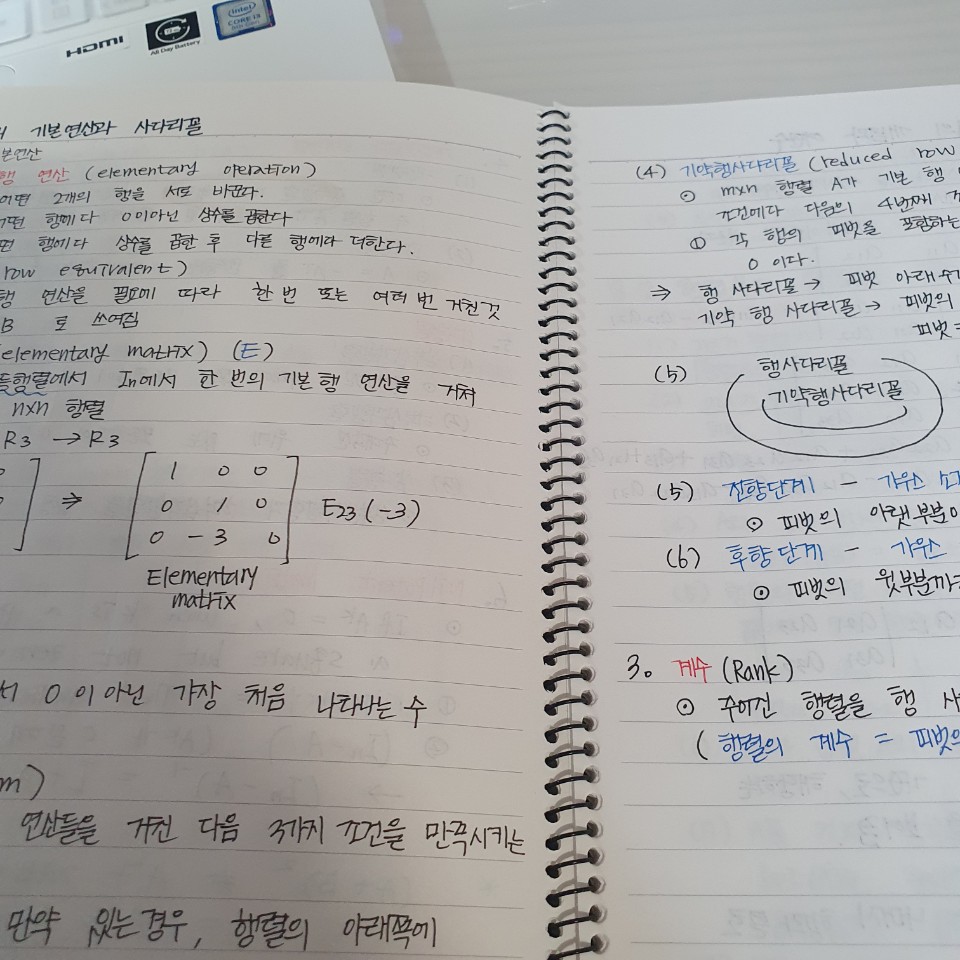 HDMI
All Day Battery
intel
CORE i5
기본연산과 사다리꼴
본연산
행 연산 (elementary operation)
어떤 2개의 행을 서로 바꾼다.
어떤 행에다 0이아닌 상수를 곱한다
떤 행에다 상수를 곱한 후 다른 행에다 더한다.
row equivalent)
행 연산을 필요에 따라 한 번 또는 여러 번 거친 것
B 로 쓰여짐
elementary matrix) (E)
등행렬에서 In에서 한 번의 기본 행 연산을 거쳐
nxn 행렬
R3 → R3
⇒
1 0 0
0 1 0
0 -3 0
E23(-3)
Elementary
matrix
서 0이 아닌 가장 처음 나타나는 수
m)
연산들을 거친 다음 3가지 조건을 만족시키는
만약 있는경우, 행렬의 아래쪽에
(4) 기약행사다리꼴 (reduced row
⊙ mxn 행렬 A가 기본 행
조건에다 다음의 4번째
① 각 행의 피벗을 포함하는
0 이다.
⇒ 행 사다리꼴 → 피벗 아래
기약 행 사다리꼴 → 피벗의
피벗 =
(5) 행사다리꼴
기약행사다리꼴
(5) 전향단계 - 가우스
⊙ 피벗의 아랫부분이
(6) 후향단계 - 가우스
⊙ 피벗의 윗부분까지
3. 계수 (Rank)
⊙ 주어진 행렬을 행
( 행렬의 계수 = 피벗의